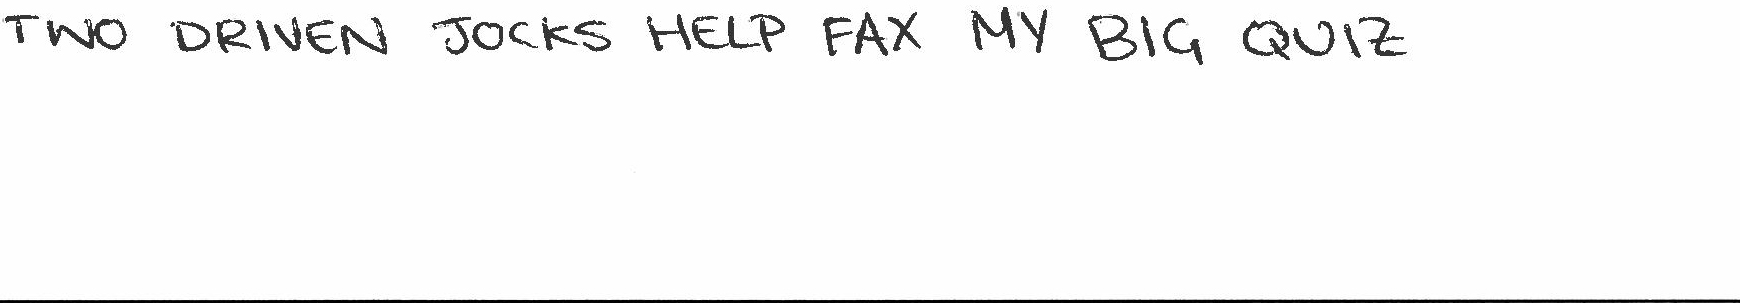 TWO DRIVEN JOCKS HELP FAX MY BIG QUIZ